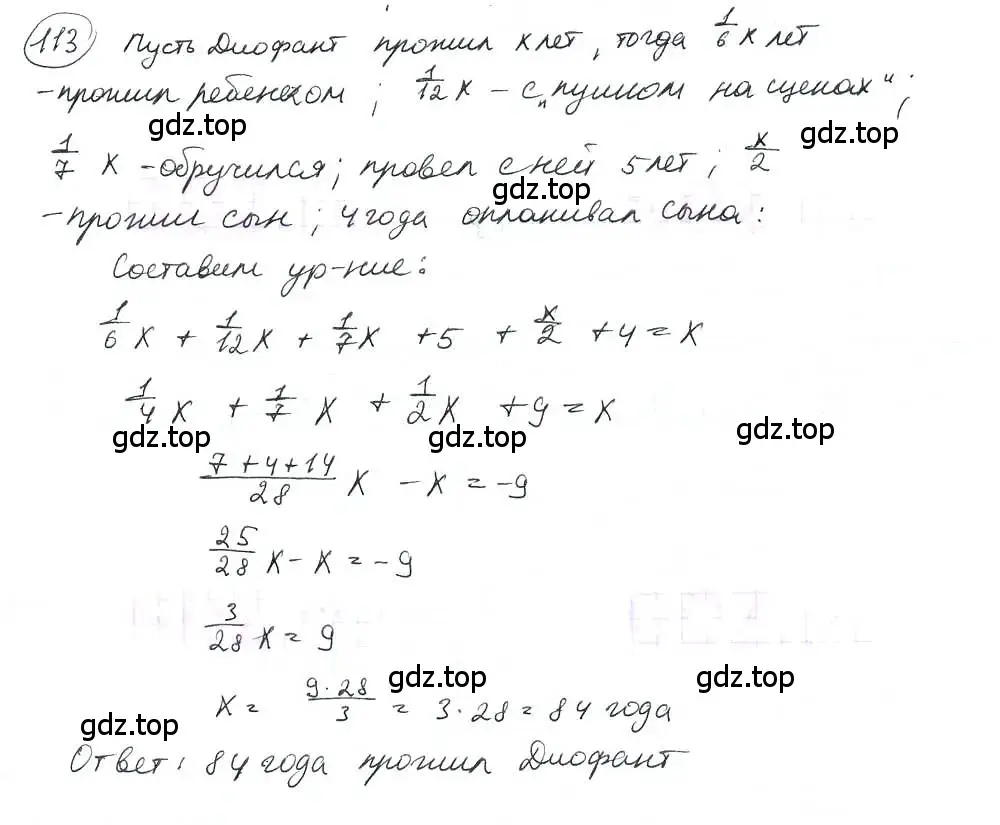 113 Пусть Диофант прожил x лет, тогда 1/6 x лет
- прожил ребенком; 1/12 x - с „пушком на щеках“;
gdz.top gdz.top
1/7 x - обручился; провел с ней 5 лет; x/2
gdz.top
- прожил сын; 4 года оплакивал сына:
Составим ур-ние:
1/6 x + 1/12 x + 1/7 x + 5 + x/2 + 4 = x
1/4 x + 1/7 x + 1/2 x + 9 = x
gdz.top gdz.top gdz.top
(7+4+14)/28 x - x = -9
25/28 x - x = -9
3/28 x = 9
gdz.top gdz.top
x = (9·28)/3 = 3·28 = 84 года
gdz.top
Ответ: 84 года прожил Диофант